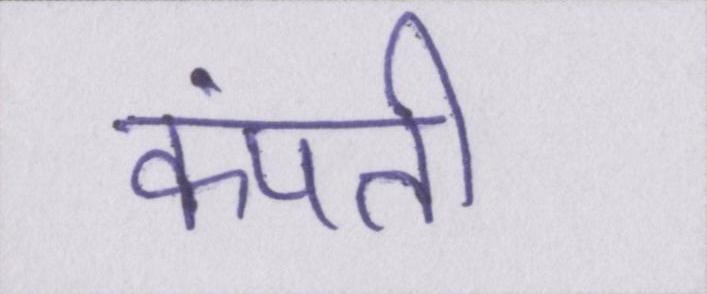 कंपती